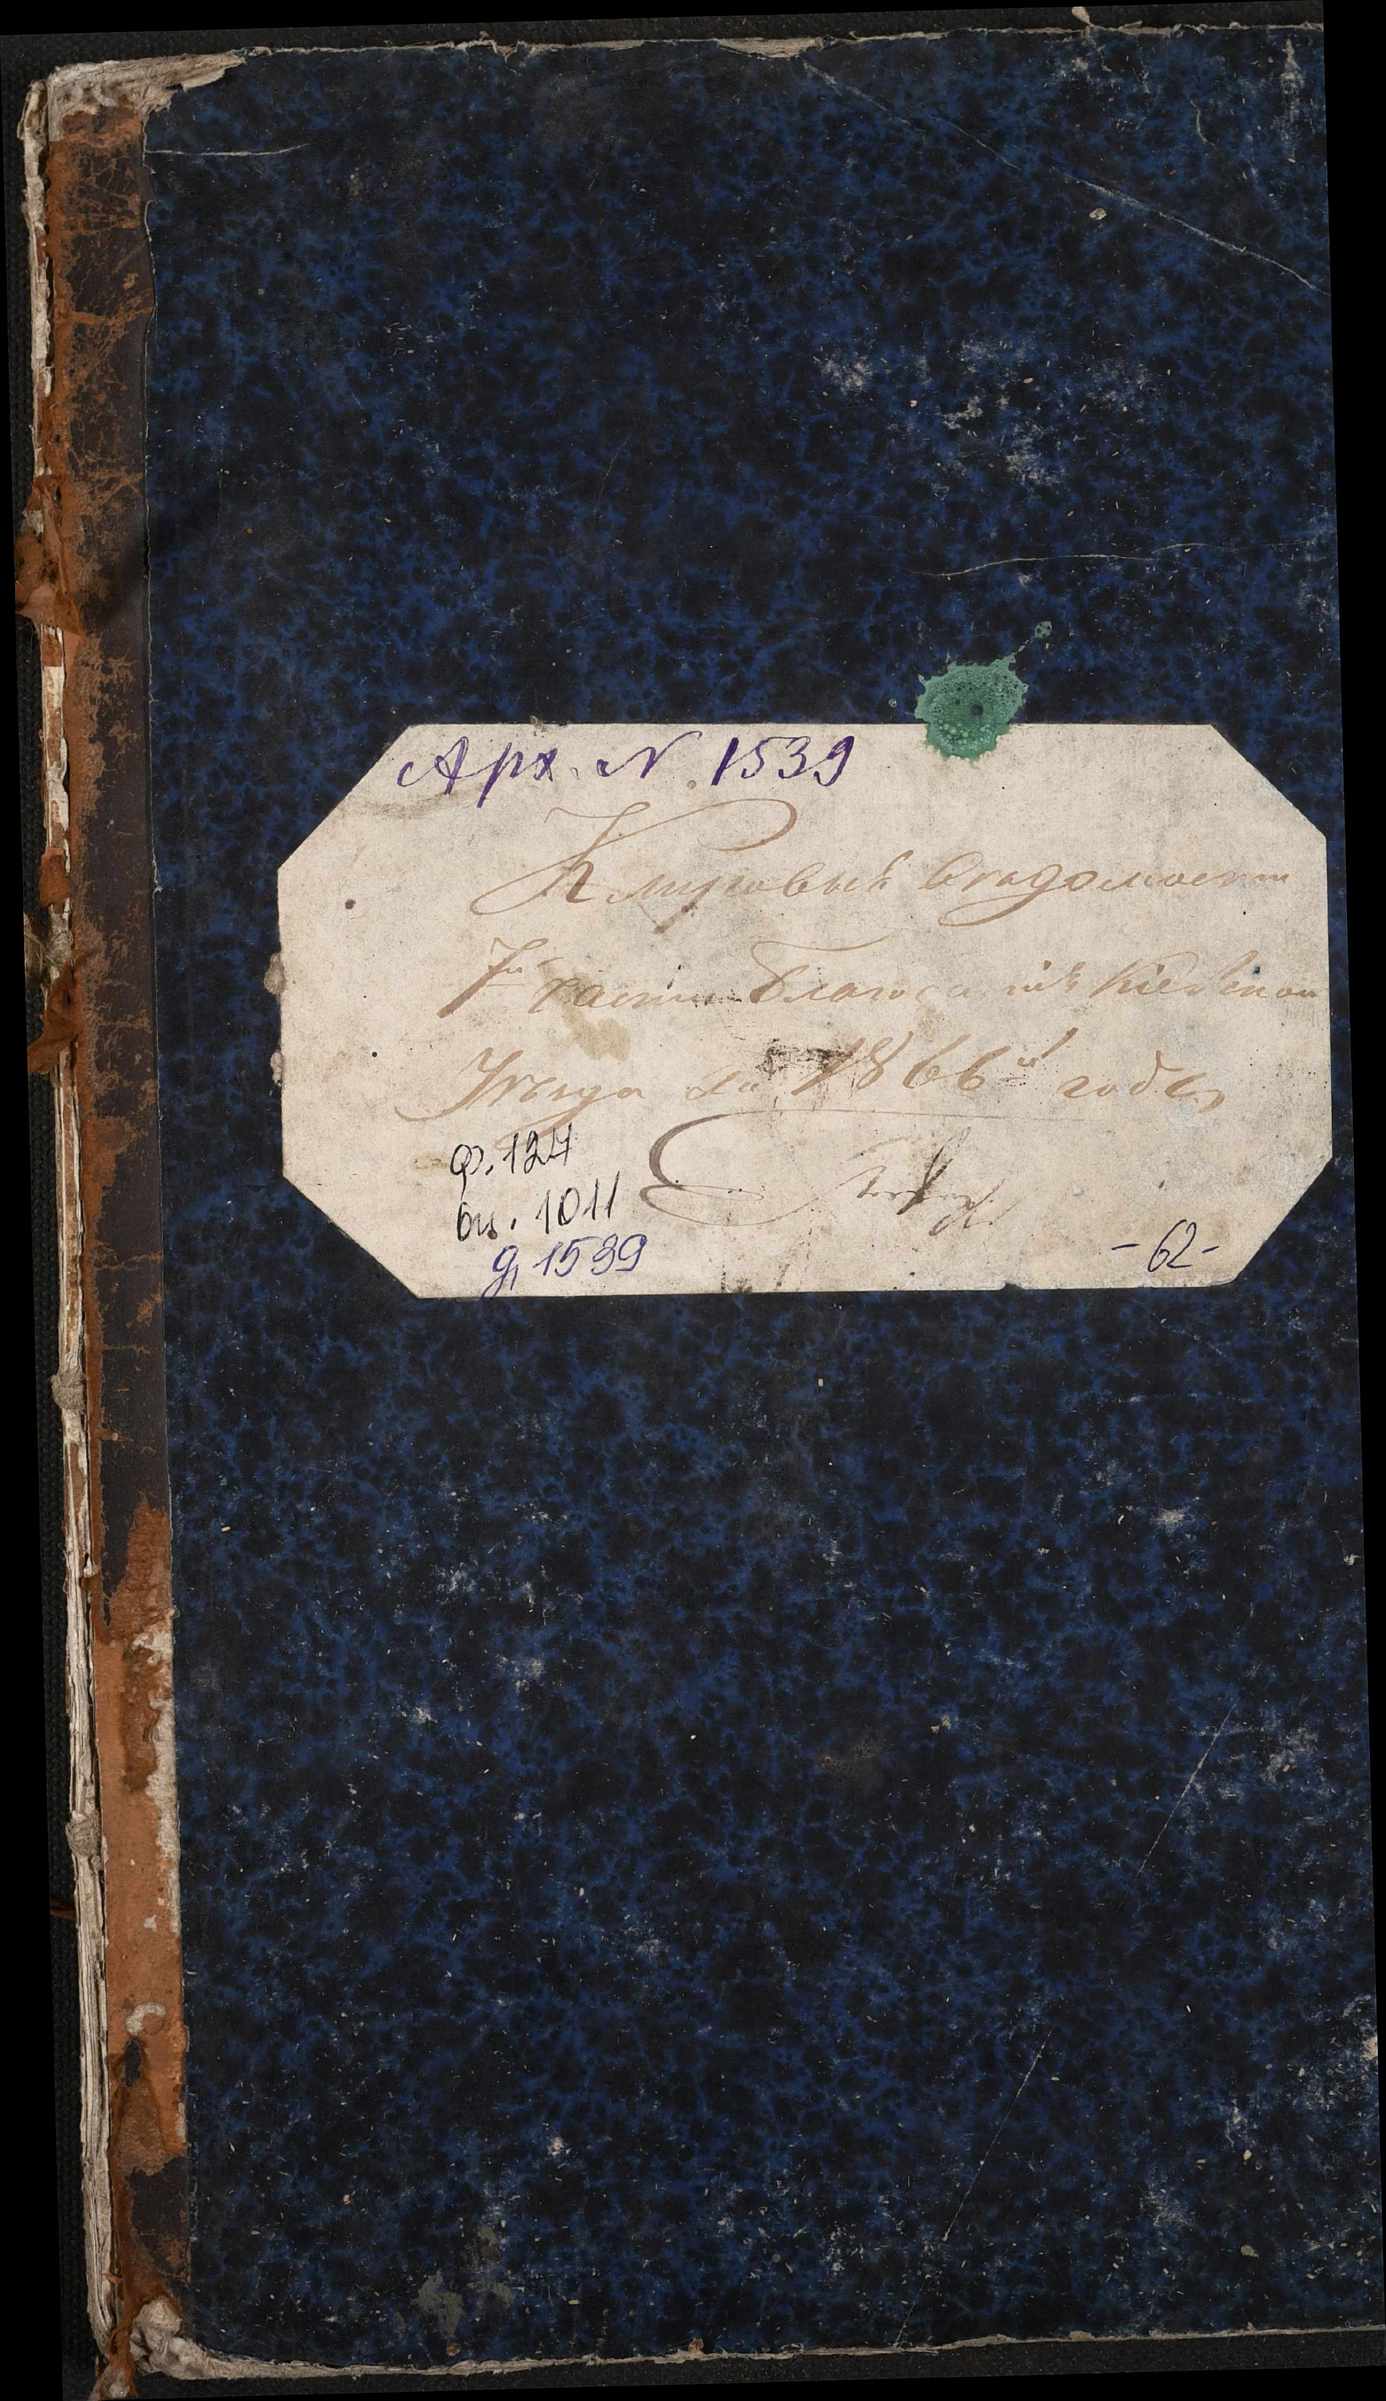 Арх. N. 1539
Клировыя вѣдомости
7й части Благоч Кіевскаго
Уѣзда за 1866й годъ
ф. 127
оп. 1011
д. 1539
- 62 -